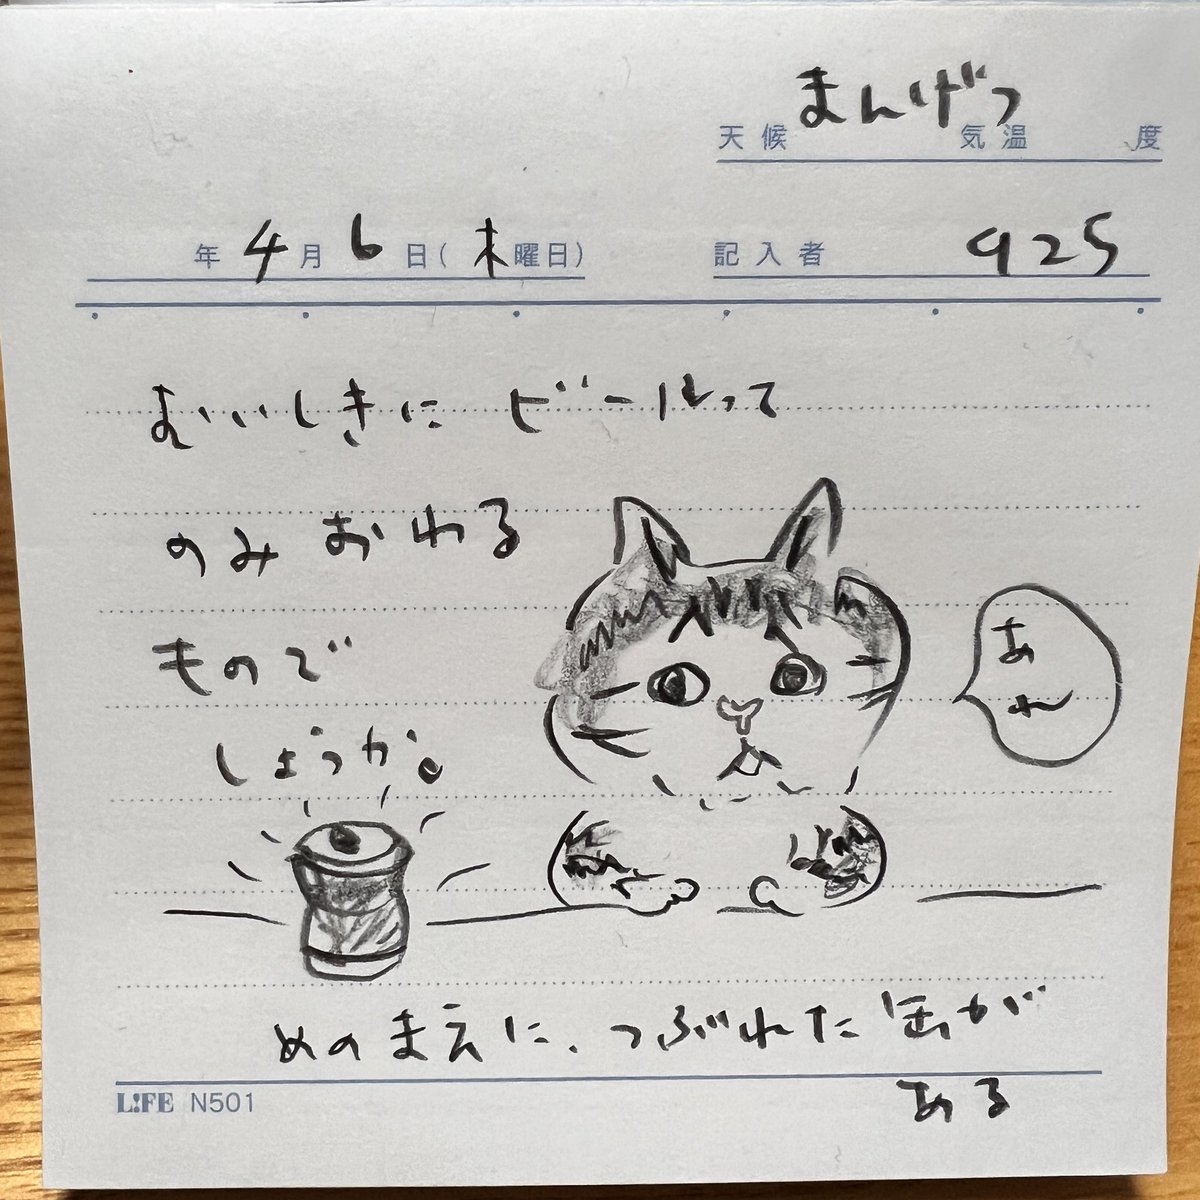 天候 まんげつ 気温 度
年 4月 6日(木曜日) 記入者 925
むいしきに ビールって
のみ おわる
もので
しょうか。
あれ
めのまえに、つぶれた缶が
ある
L!FE N501